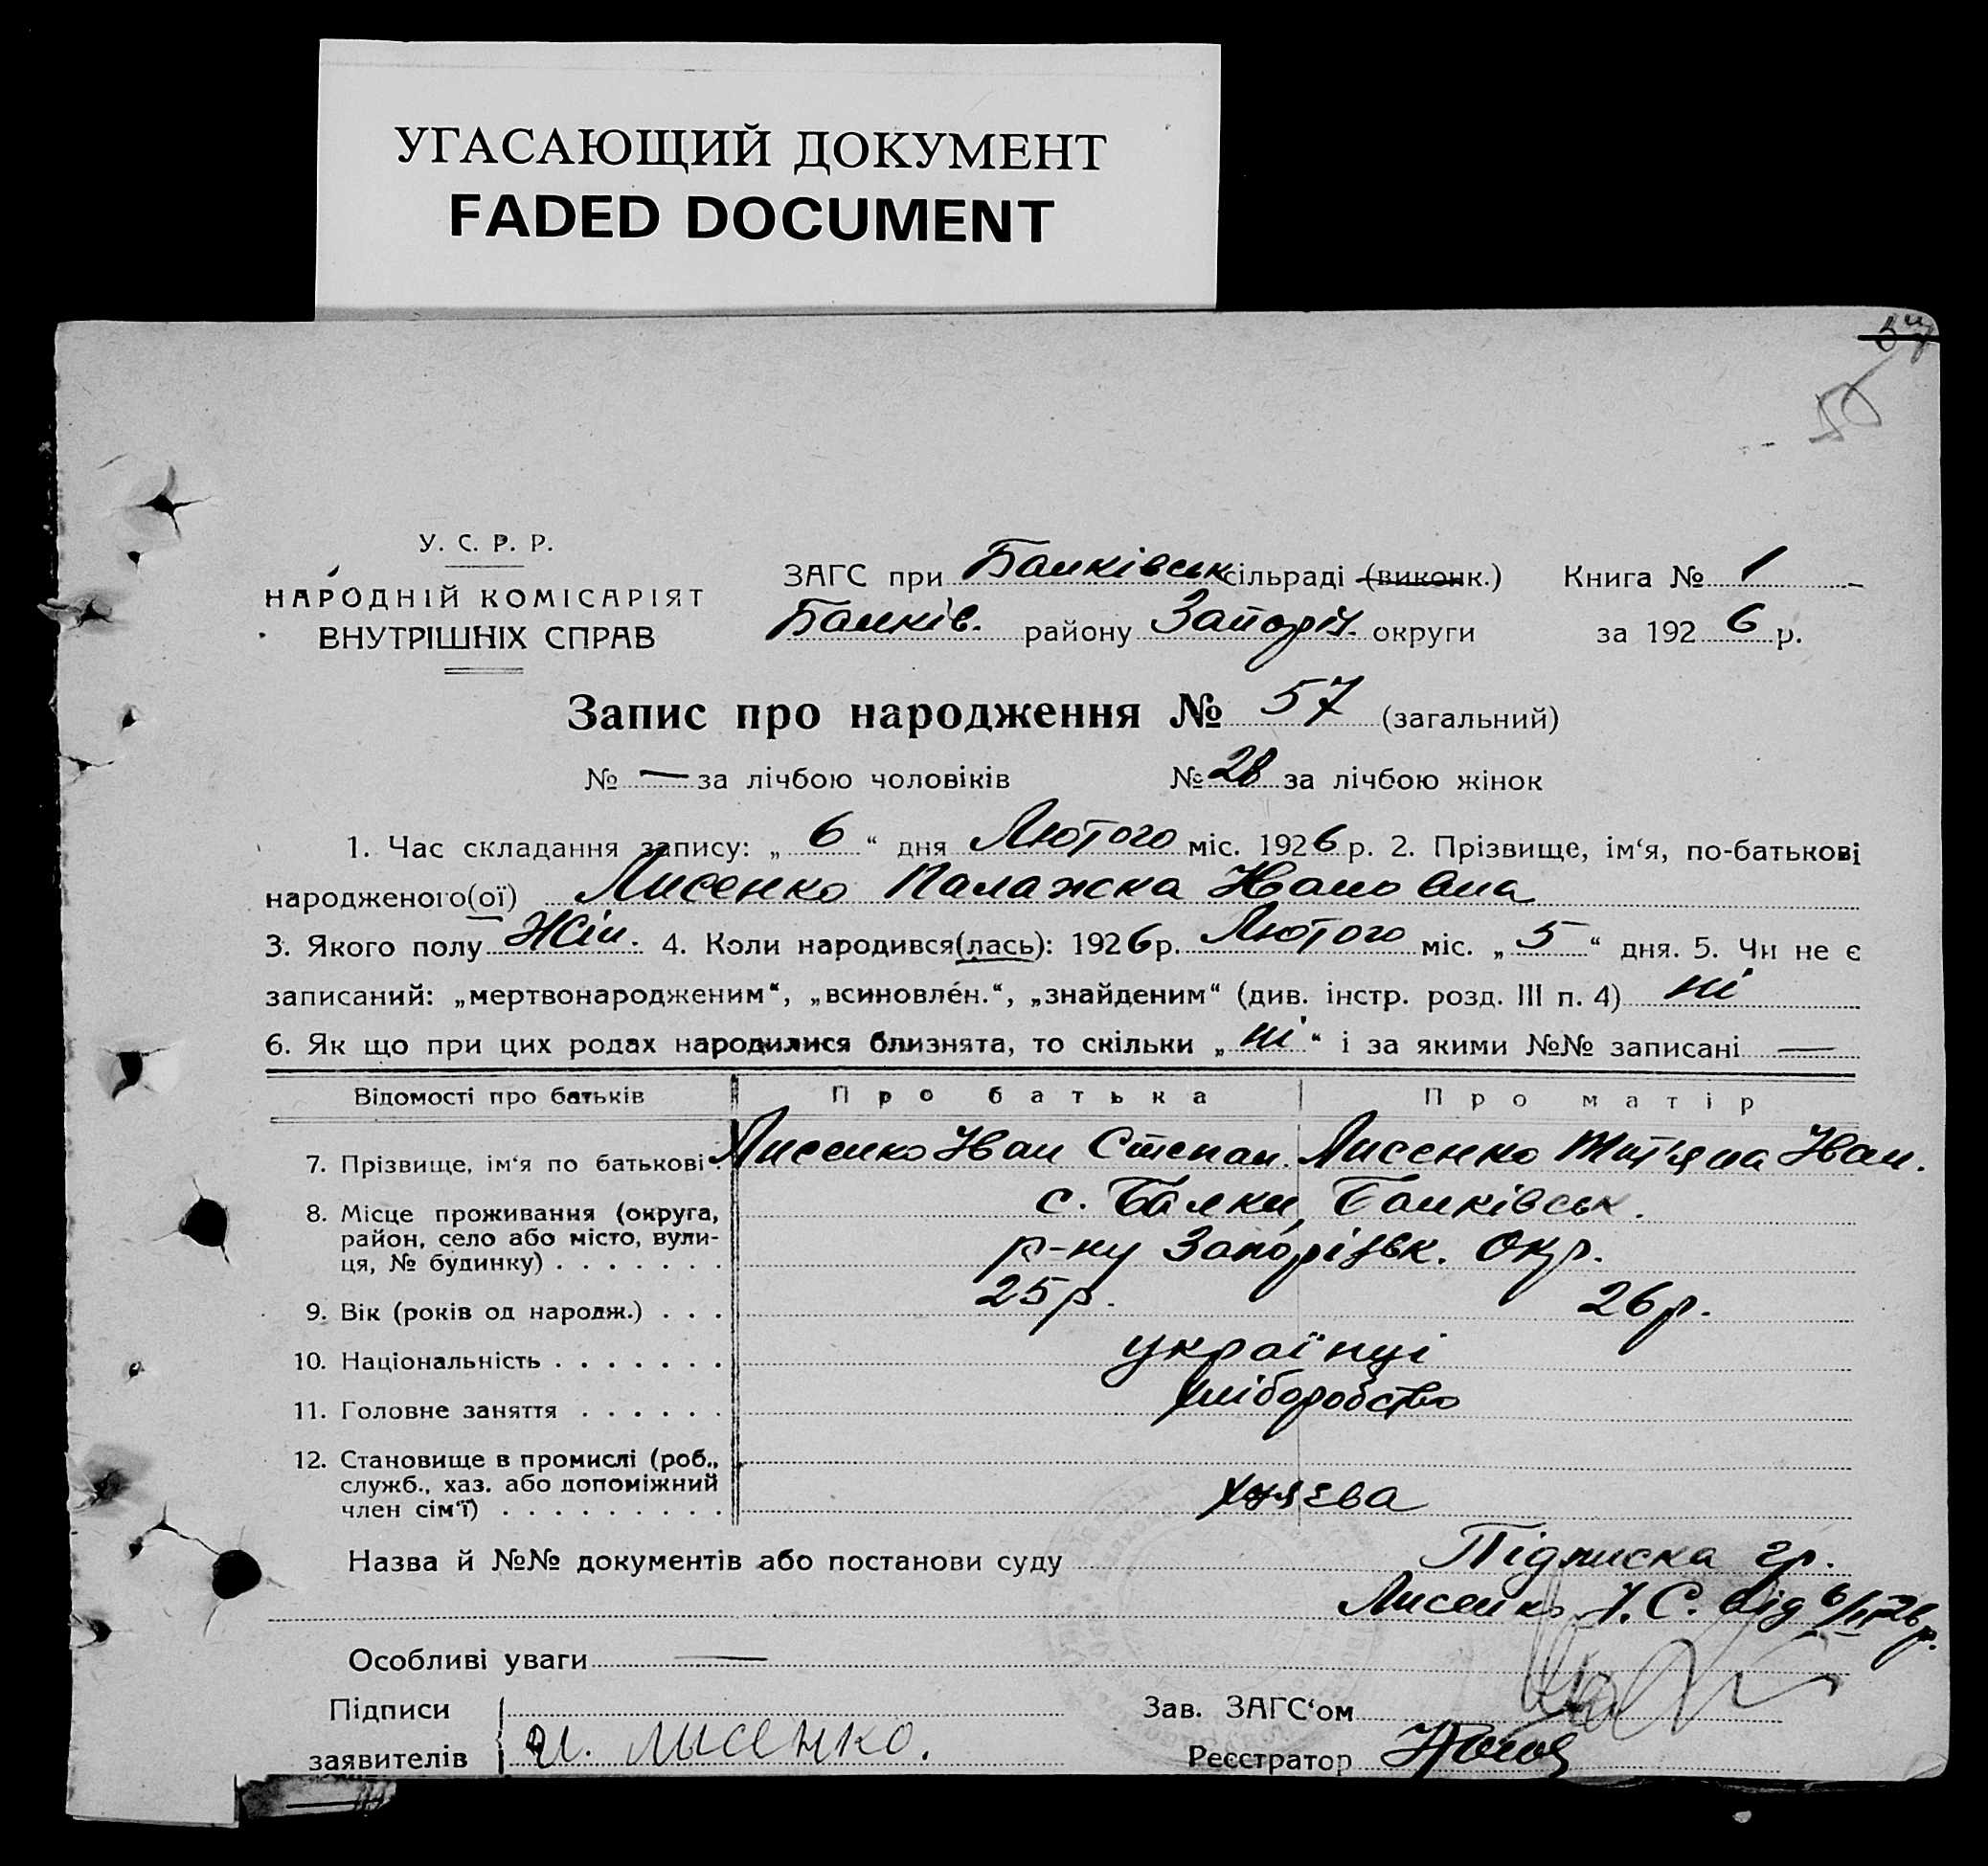 УГАСАЮЩИЙ ДОКУМЕНТ
FADED DOCUMENT
57
56
У. С. Р. Р.
НАРОДНІЙ КОМІСАРІЯТ
ВНУТРІШНІХ СПРАВ
ЗАГС при Балківськ сільраді (виконк.) Книга № 1
Балків. району Запоріз. округи за 1926 р.
Запис про народження № 57 (загальний)
№ — за лічбою чоловіків № 28 за лічбою жінок
1. Час складання запису: „ 6 “ дня Лютого міс. 1926 р. 2. Прізвище, ім‘я, по-батькові
народженого(ої) Лисенко Палажка Івановна
3. Якого полу Жін. 4. Коли народився(лась): 1926 р. Лютого міс. „ 5 “ дня. 5. Чи не є
записаний: „мертвонародженим“, „всиновлéн.“, „знайденим“ (див. інстр. розд. III п. 4) ні
6. Як що при цих родах народилися близнята, то скільки „ ні “ і за якими №№ записані —
Відомості про батьків Про батька Про матір
7. Прізвище, ім‘я по батькові . Лисенко Іван Степан. Лисенко Тит'яна Іван.
8. Місце проживання (округа, с. Балки, Балківськ.
район, село або місто, вули- р-ну Запорізьк. Окр.
ця, № будинку) . . . . . . .
9. Вік (років од народж.) . . . 25 р. 26 р.
10. Національність . . . . . . . українці
11. Головне заняття . . . . . . хліборобство
12. Становище в промислі (роб.,
служб., хаз. або допоміжний
член сім‘ї) . . . . . . . . . хазяєва
Назва й №№ документів або постанови суду Підписка гр.
Лисенко І. С. від 6/II-26 р.
Особливі уваги —
Підписи Зав. ЗАГС‘ом
заявителів И. Лисенко. Реєстратор